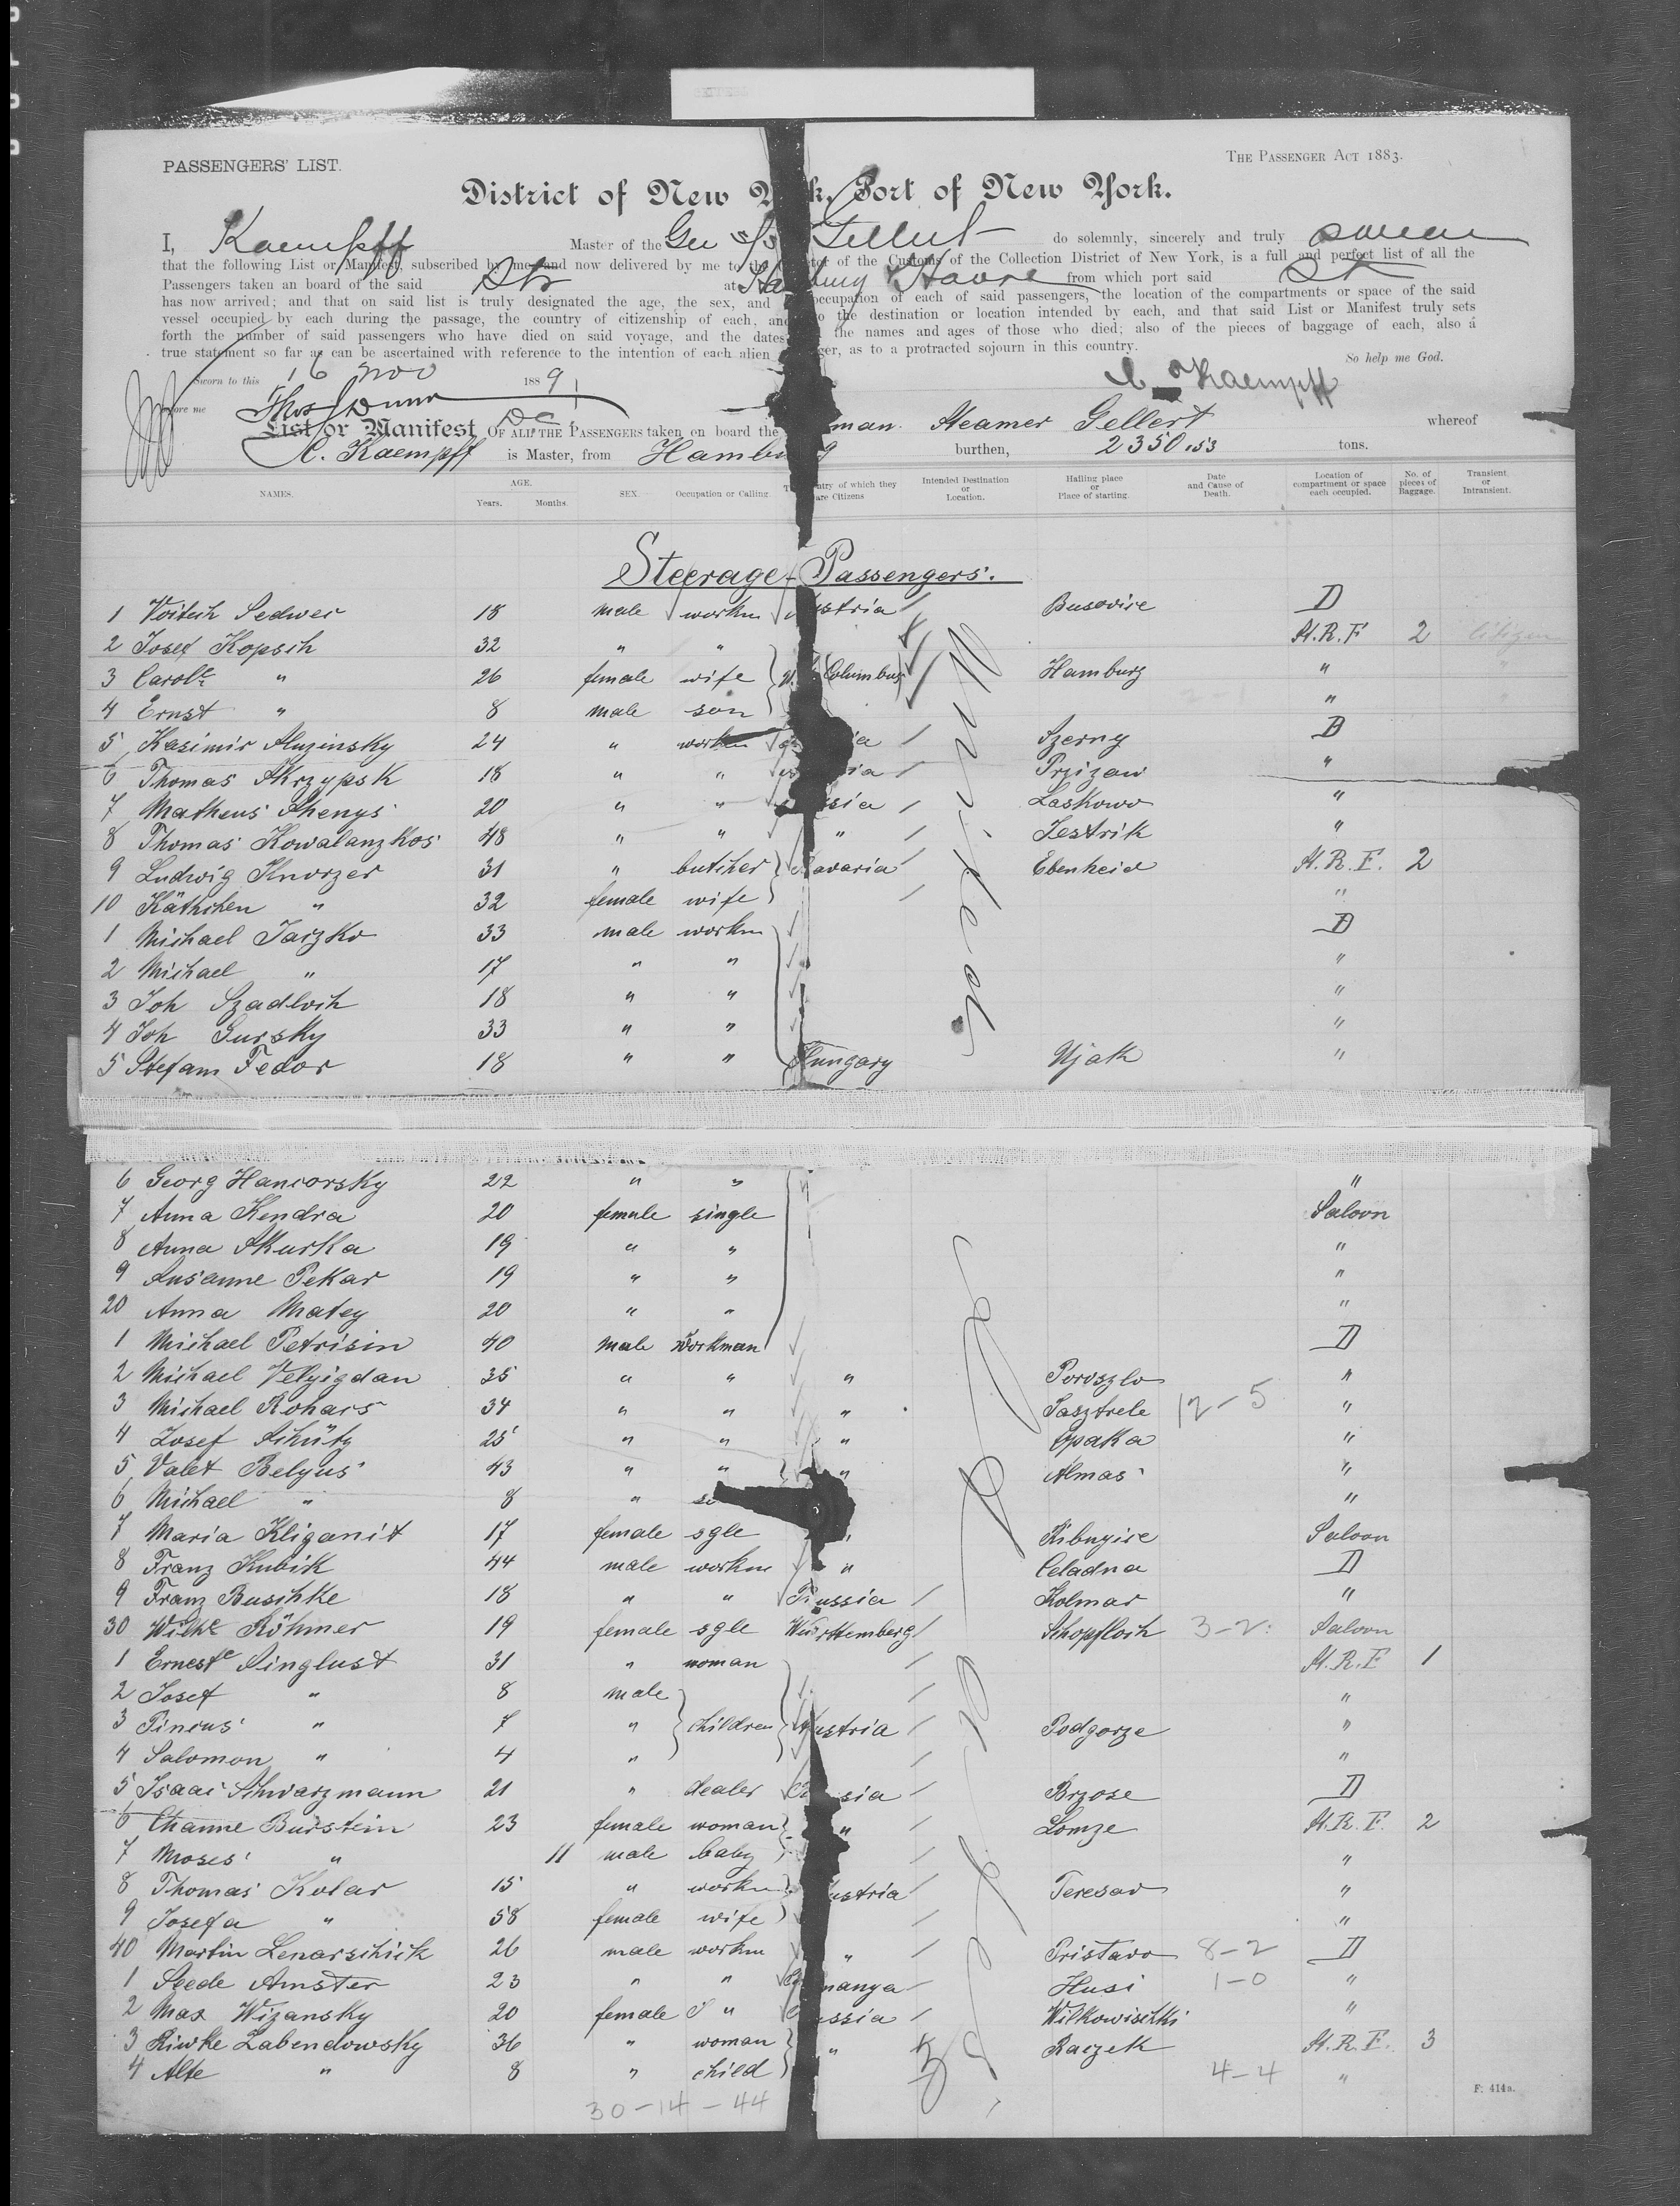 PASSENGERS' LIST.
THE PASSENGER ACT 1883.
District of New York, Port of New York.
I, Kaempff Master of the Ger S/S Gellert do solemnly, sincerely and truly swear
that the following List or Manifest, subscribed by me, and now delivered by me to the of the Customs of the Collection District of New York, is a full and perfect list of all the
Passengers taken an board of the said Str at Hamburg Havre from which port said St
has now arrived; and that on said list is truly designated the age, the sex, and occupation of each of said passengers, the location of the compartments or space of the said
vessel occupied by each during the passage, the country of citizenship of each, and the destination or location intended by each, and that said List or Manifest truly sets
forth the number of said passengers who have died on said voyage, and the dates the names and ages of those who died; also of the pieces of baggage of each, also a
true statement so far as can be ascertained with reference to the intention of each alien as to a protracted sojourn in this country.
So help me God.
Sworn to this 16 Nov 1889
C. Kaempff
before me Thos J Dunn
DC
List or Manifest OF ALL THE PASSENGERS taken on board the German Steamer Gellert whereof
C. Kaempff is Master, from Hamburg burthen, 2350.53 tons.
NAMES. AGE. Years. Months. SEX. Occupation or Calling. The country of which they are Citizens Intended Destination or Location. Hailing place or Place of starting. Date and Cause of Death. Location of compartment or space each occupied. No. of pieces of Baggage. Transient. or Intransient.
Steerage-Passengers.
1 Voitech Sedwec 18 male workm Austria Busovice D
2 Josef Kopsch 32 " " H.R.F 2 citizen
3 Carole " 26 female wife Columbus Hamburg " "
4 Ernst " 8 male son "
5 Kasimir Sluzinsky 24 " workm Szerny D
6 Thomas Skrzypsk 18 " " Przizow "
7 Matheus Shenys 20 " " Russia Laskowo "
8 Thomas Kowalanzkos 48 " " " Jestrik "
9 Ludwig Knorzer 31 " butcher Bavaria Ebenheid H.R.F. 2
10 Käthchen " 32 female wife "
1 Michael Jaczko 33 male workm D
2 Michael " 17 " " "
3 Joh Szadloch 18 " " "
4 Joh Gursky 33 " " "
5 Stefam Fedor 18 " " Hungary Ujak "
6 Georg Hancorsky 22 " " "
7 Anna Kendra 20 female single Saloon
8 Anna Skurka 19 " " "
9 Susanne Pekar 19 " " "
20 Anna Matey 20 " " "
1 Michael Petrisin 40 male workman D
2 Michael Velyigdan 35 " " " Poroszlo "
3 Michael Kohars 34 " " " Jasztrele 12-5 "
4 Josef Schütz 25 " " " Opaka "
5 Valet Belyus 43 " " " Almas "
6 Michael " 8 " "
7 Maria Kliganit 17 female sgle Kibnyice Saloon
8 Franz Kubik 44 male workm " Celadna D
9 Franz Buschke 18 " " Prussia Kolmar "
30 Wilhe Röhmer 19 female sgle Württemberg Schopfloch 3-2 Saloon
1 Erneste Singlust 31 " woman H.R.F 1
2 Josef " 8 male "
3 Pincus " 7 " children Austria Podgorze "
4 Salomon " 4 " "
5 Isaac Schwarzmann 21 " dealer Russia Brzose D
6 Channe Burstein 23 female woman " Lomze H.R.F. 2
7 Moses " 11 male baby "
8 Thomas Kolar 15 " workm Austria Teresov "
9 Josefa " 58 female wife "
40 Martin Lenarschick 26 male workm " Pristavo 8-2 D
1 Seede Amster 23 " " Husi 1-0 "
2 Max Wizansky 20 female " Russia Wilkowischki "
3 Riwke Labendowsky 36 " woman " Raczek H.R.F. 3
4 Alte " 8 " child 4-4 "
30-14-44
F. 414a.